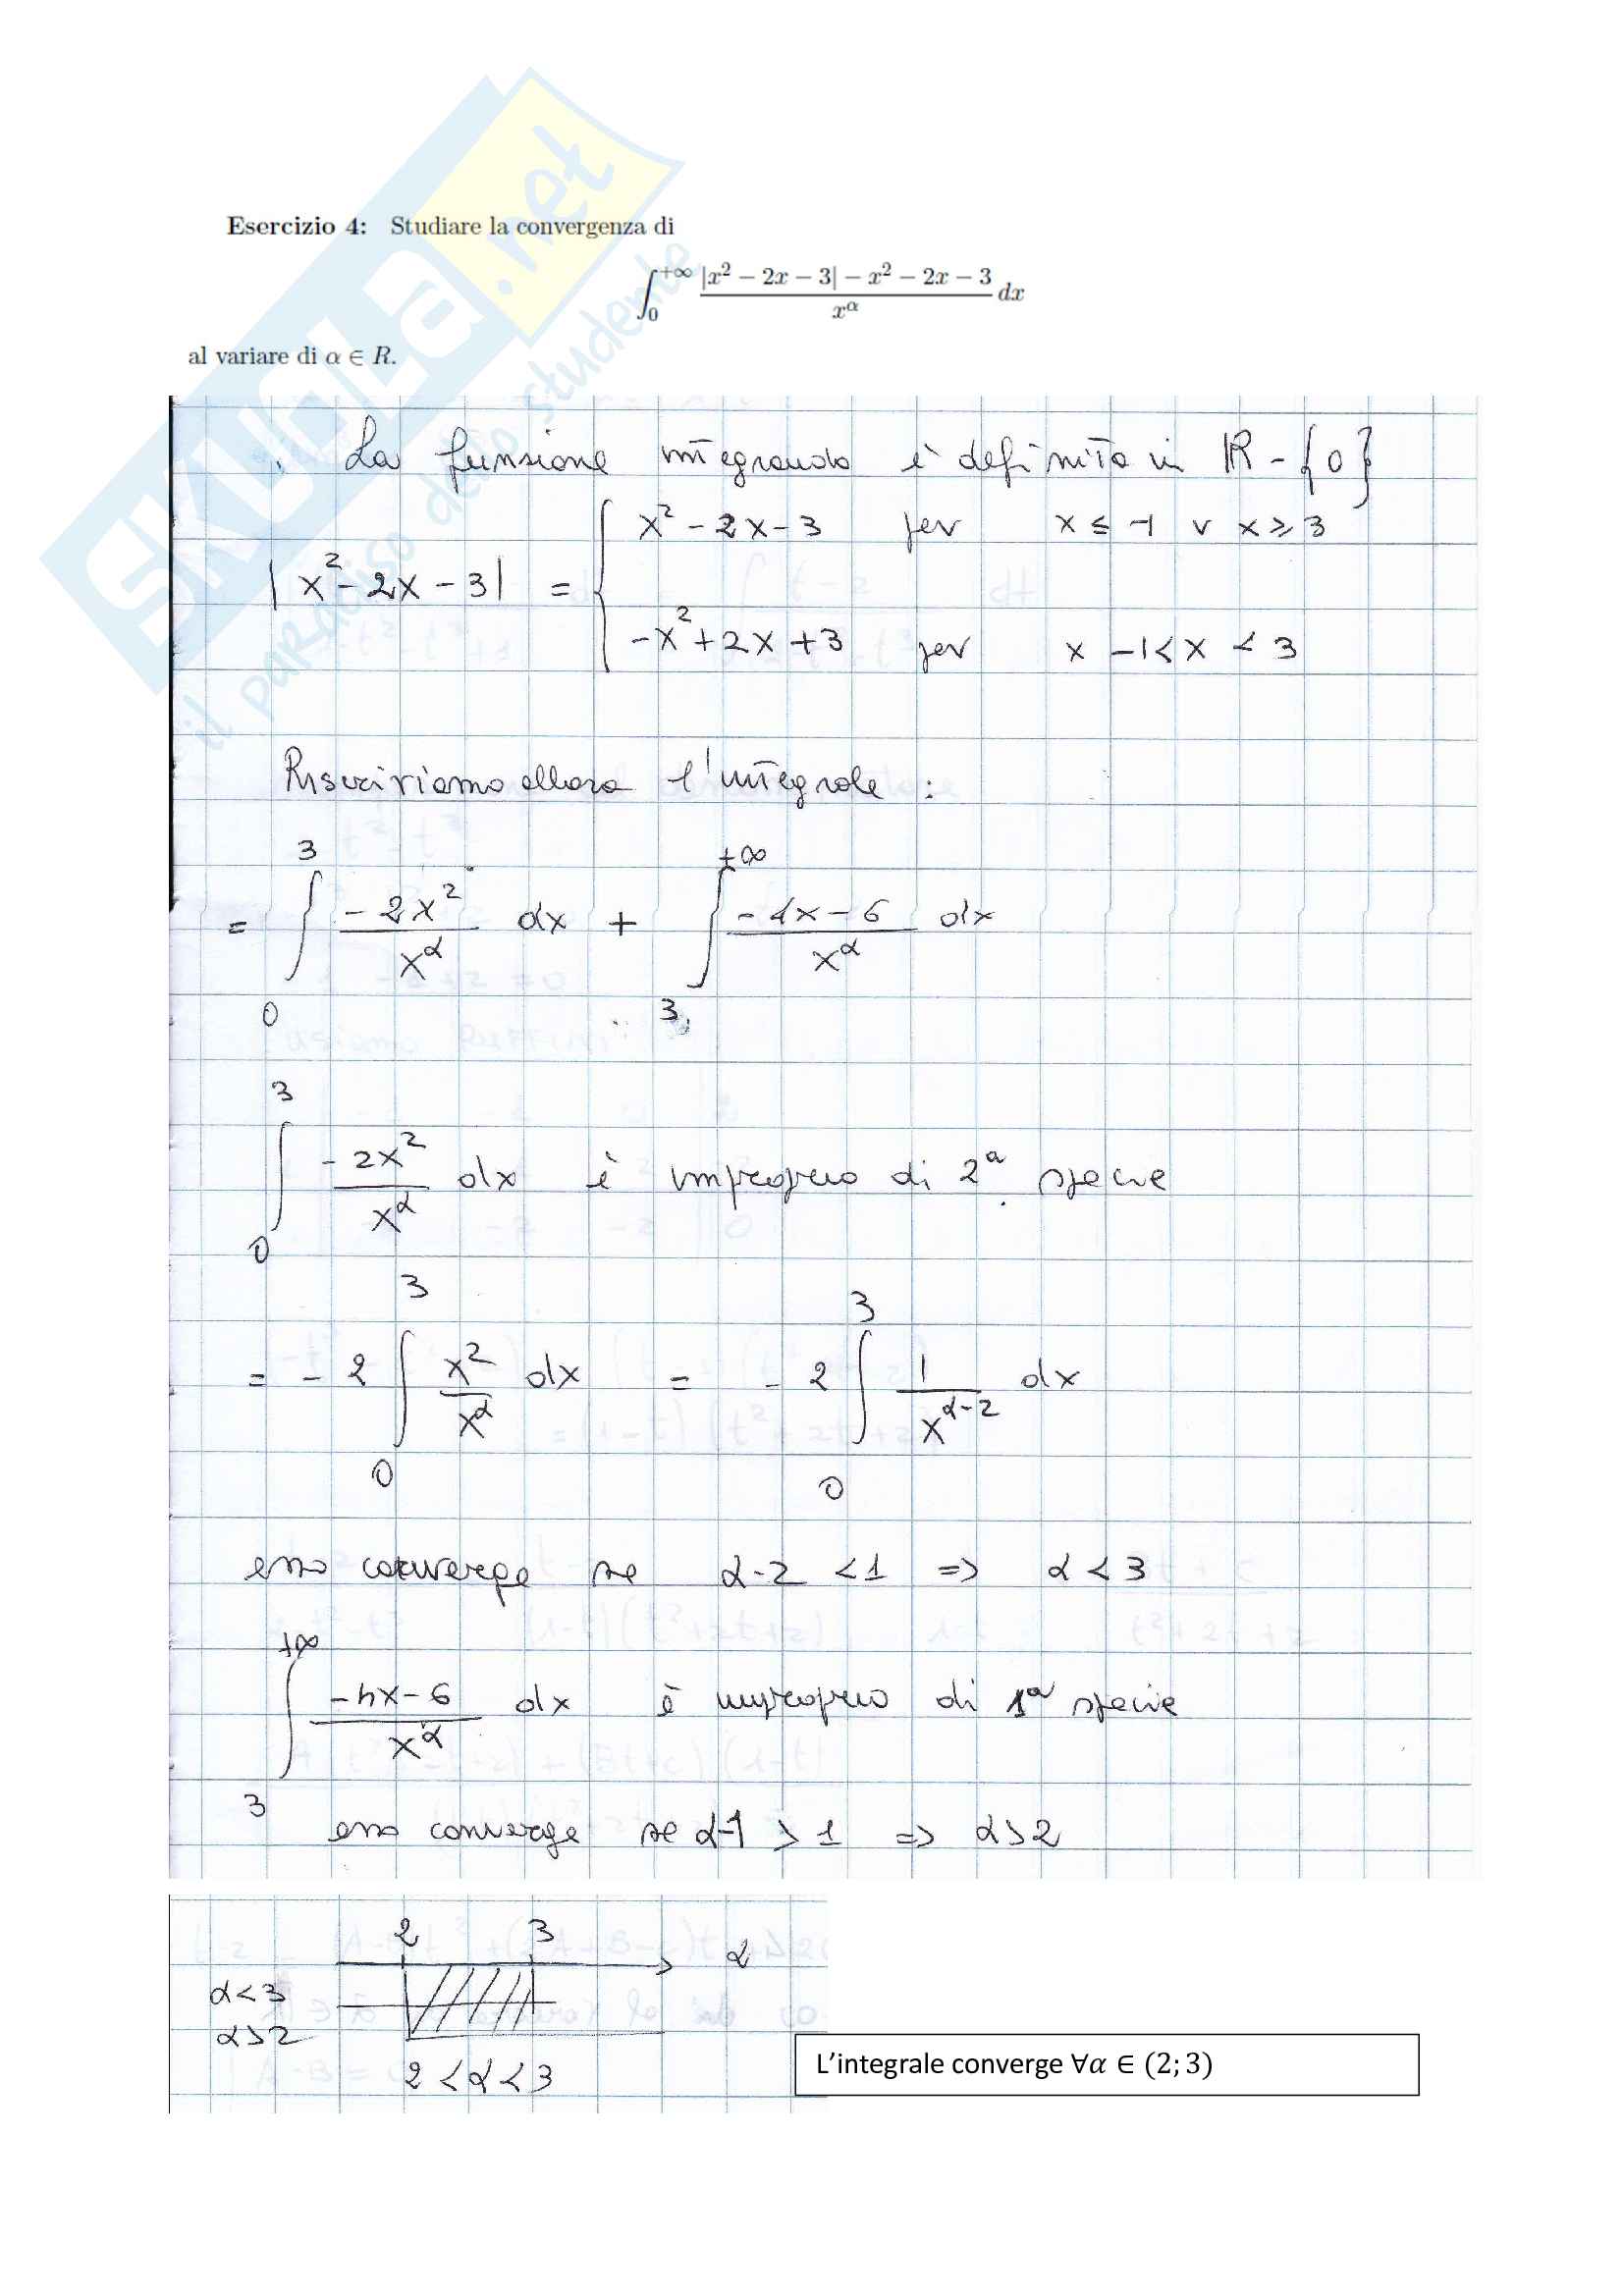 SKUOLA.net
il paradiso dello studente
Esercizio 4: Studiare la convergenza di
∫_0^{+∞} (|x² − 2x − 3| − x² − 2x − 3)/x^α dx
al variare di α ∈ R.
La funzione integranda è definita in ℝ - {0}
|x² - 2x - 3| = { x² - 2x - 3 per x ≤ -1 ∨ x ≥ 3
-x² + 2x + 3 per x -1 < x < 3
Riscriviamo allora l'integrale :
= ∫_0^3 (-2x²)/x^α dx + ∫_3^{+∞} (-4x - 6)/x^α dx
∫_0^3 (-2x²)/x^α dx è improprio di 2ª specie
= -2 ∫_0^3 x²/x^α dx = -2 ∫_0^3 1/x^{α-2} dx
esso converge se α-2 < 1 => α < 3
∫_3^{+∞} (-4x - 6)/x^α dx è improprio di 1ª specie
esso converge se α-1 > 1 => α > 2
2 3 α
α < 3
α > 2
2 < α < 3
L'integrale converge ∀α ∈ (2; 3)